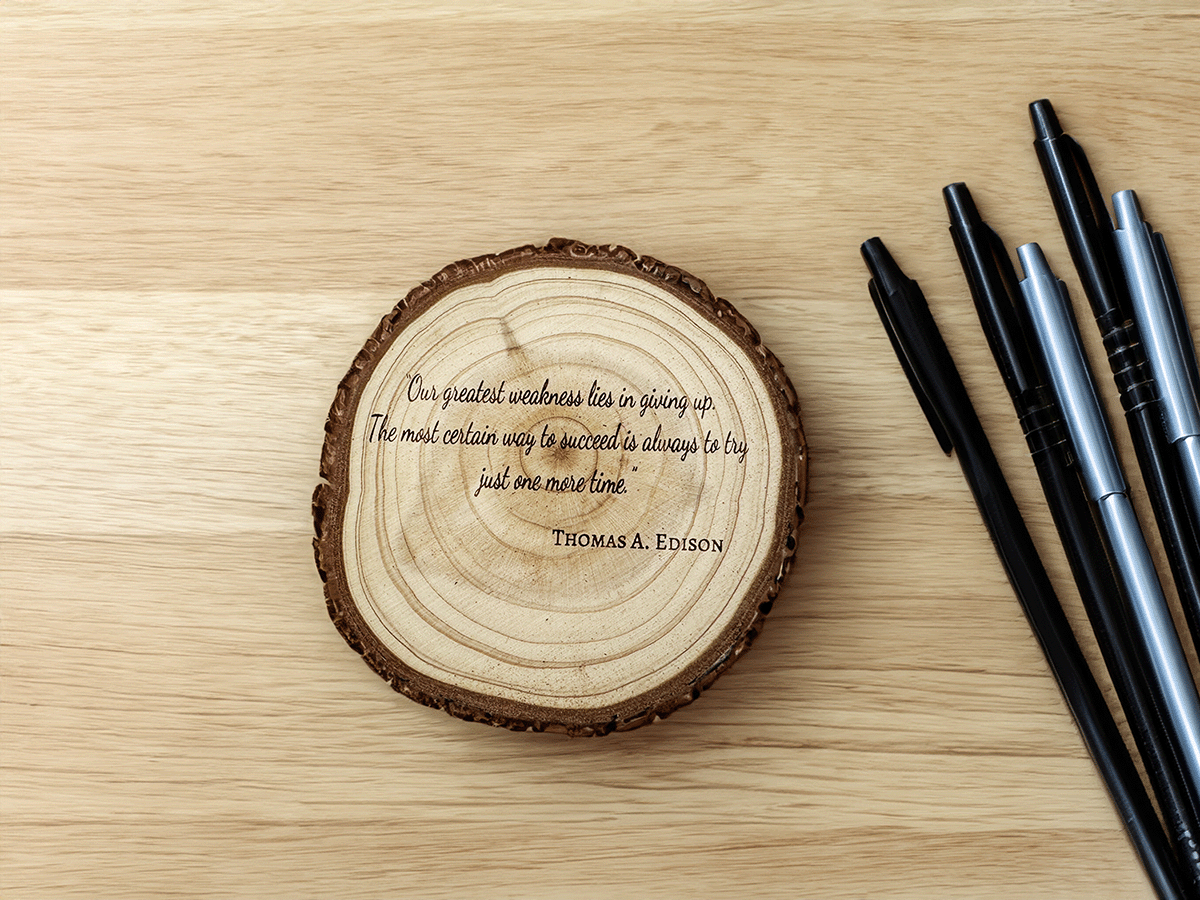 "Our greatest weakness lies in giving up.
The most certain way to succeed is always to try
just one more time."
THOMAS A. EDISON